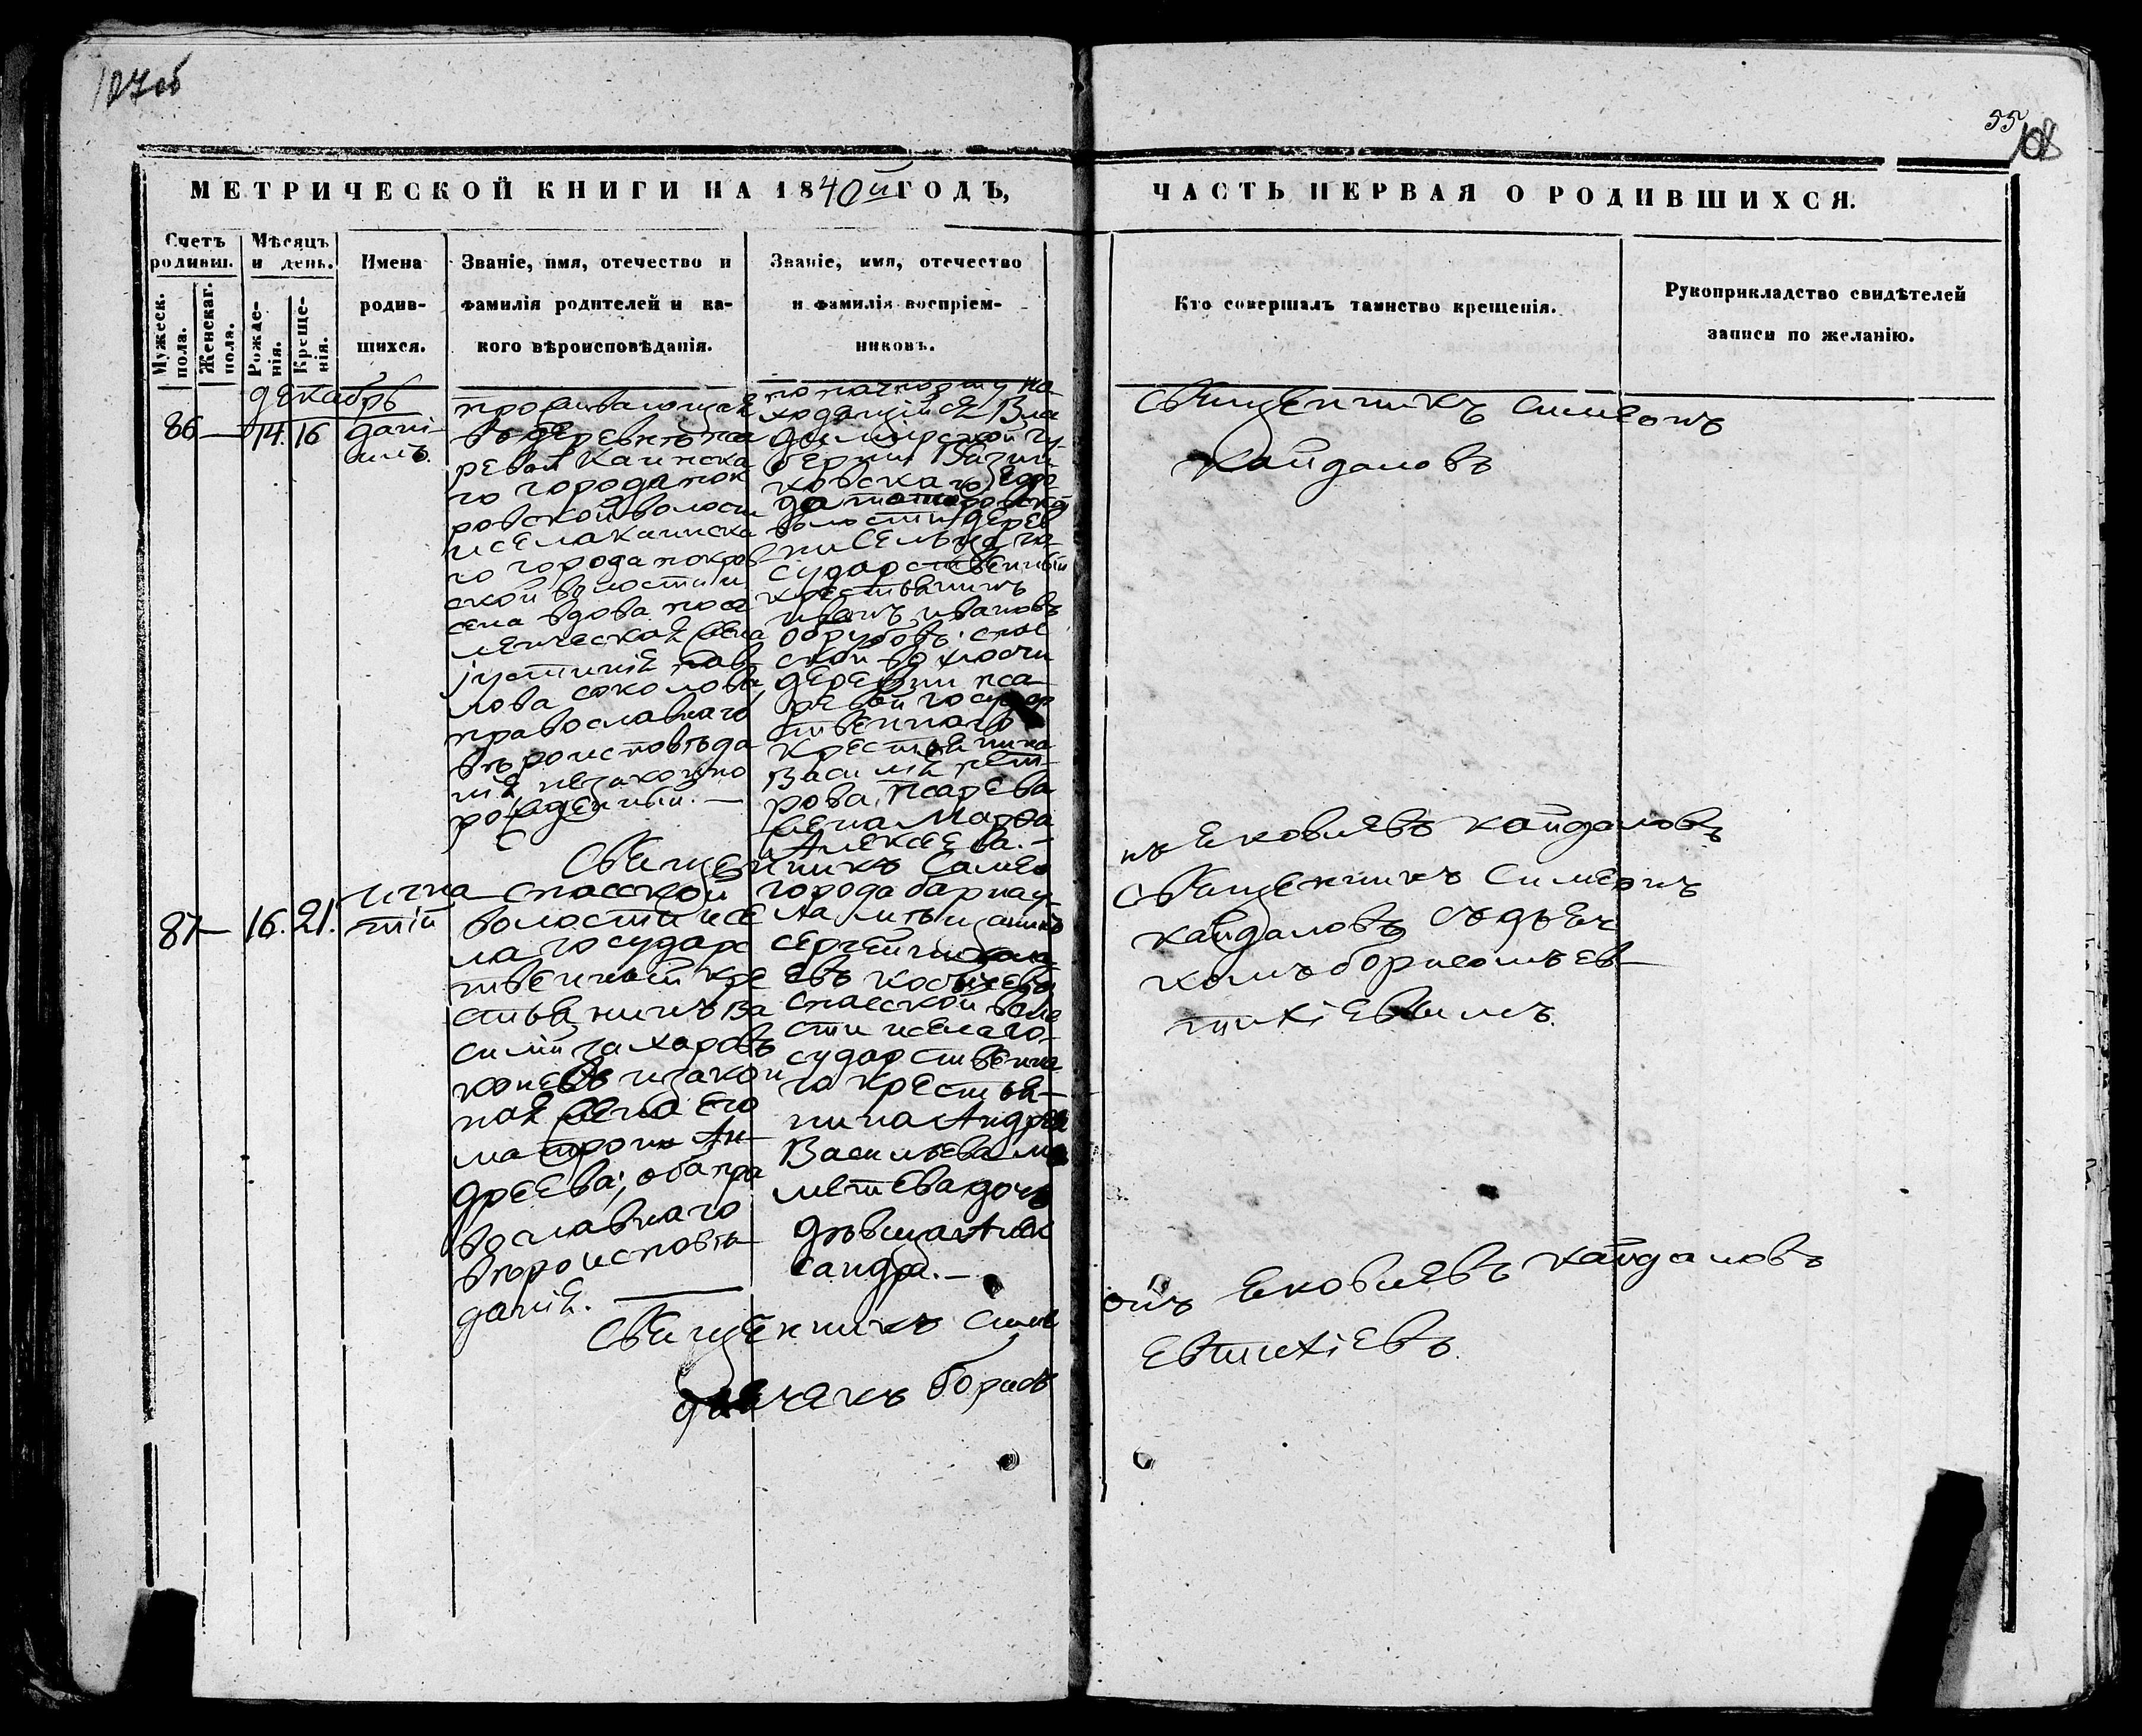 107об
55
108
МЕТРИЧЕСКОЙ КНИГИ НА 1840й ГОДЪ,
ЧАСТЬ ПЕРВАЯ О РОДИВШИХСЯ.
Счетъ родивш.
Мужеск. пола.
Женскаг. пола.
Мѣсяцъ и день.
Рожденія.
Крещенія.
Имена родившихся.
Званіе, имя, отечество и фамилія родителей и какого вѣроисповѣданія.
Званіе, имя, отечество и фамилія воспріемниковъ.
Кто совершалъ таинство крещенія.
Рукоприкладство свидѣтелей записи по желанію.
декабрь
86 — 14. 16
дані-
илъ.
проживающая
въ деревнѣ пса
ревой Каинска
го города пок
ровской волост
и села каинска
го города покров
ской волости и
села вдова посе
ленческая жена
іустинія пав
лова соколова,
православнаго
вѣроисповѣда
нія, незаконно
рожденный. —
по пачпорту на
ходящійся Вла
димірской гу
берніи Вязни
ковскаго
волости дерев
ни го
сударственный
крестьянинъ
иванъ ивановъ
обрубовъ. спас
ской волости
деревни пса
ревой государ
ственнаго
крестьянина
Василія пет
рова Псарева
жена Марфа
Алексеева. —
священникъ симеонъ
Кайдаловъ
Священникъ Симео
нъ яковлевъ кайдаловъ
87 — 16. 21.
игна
тій
спасской
волости и се
ла государс
твенный кре
стьянинъ Ва
силій захаровъ
и закон
ная жена его
матрона Ан-
дреева, оба пра
вославнаго
вѣроисповѣ
данія. —
города барнау
ла мѣщанинъ
сергей
евъ
спасской воло
сти и села го
сударственна
го крестья-
нина Андрея
Васильева ма
метева дочь
дѣвица Алек
сандра. —
священникъ симеонъ
кайдаловъ съ дьяч
комъ борисомъ ев-
тихіевымъ.
Священникъ симе
онъ яковлевъ кайдаловъ
дьячекъ борисъ
евтихіевъ.